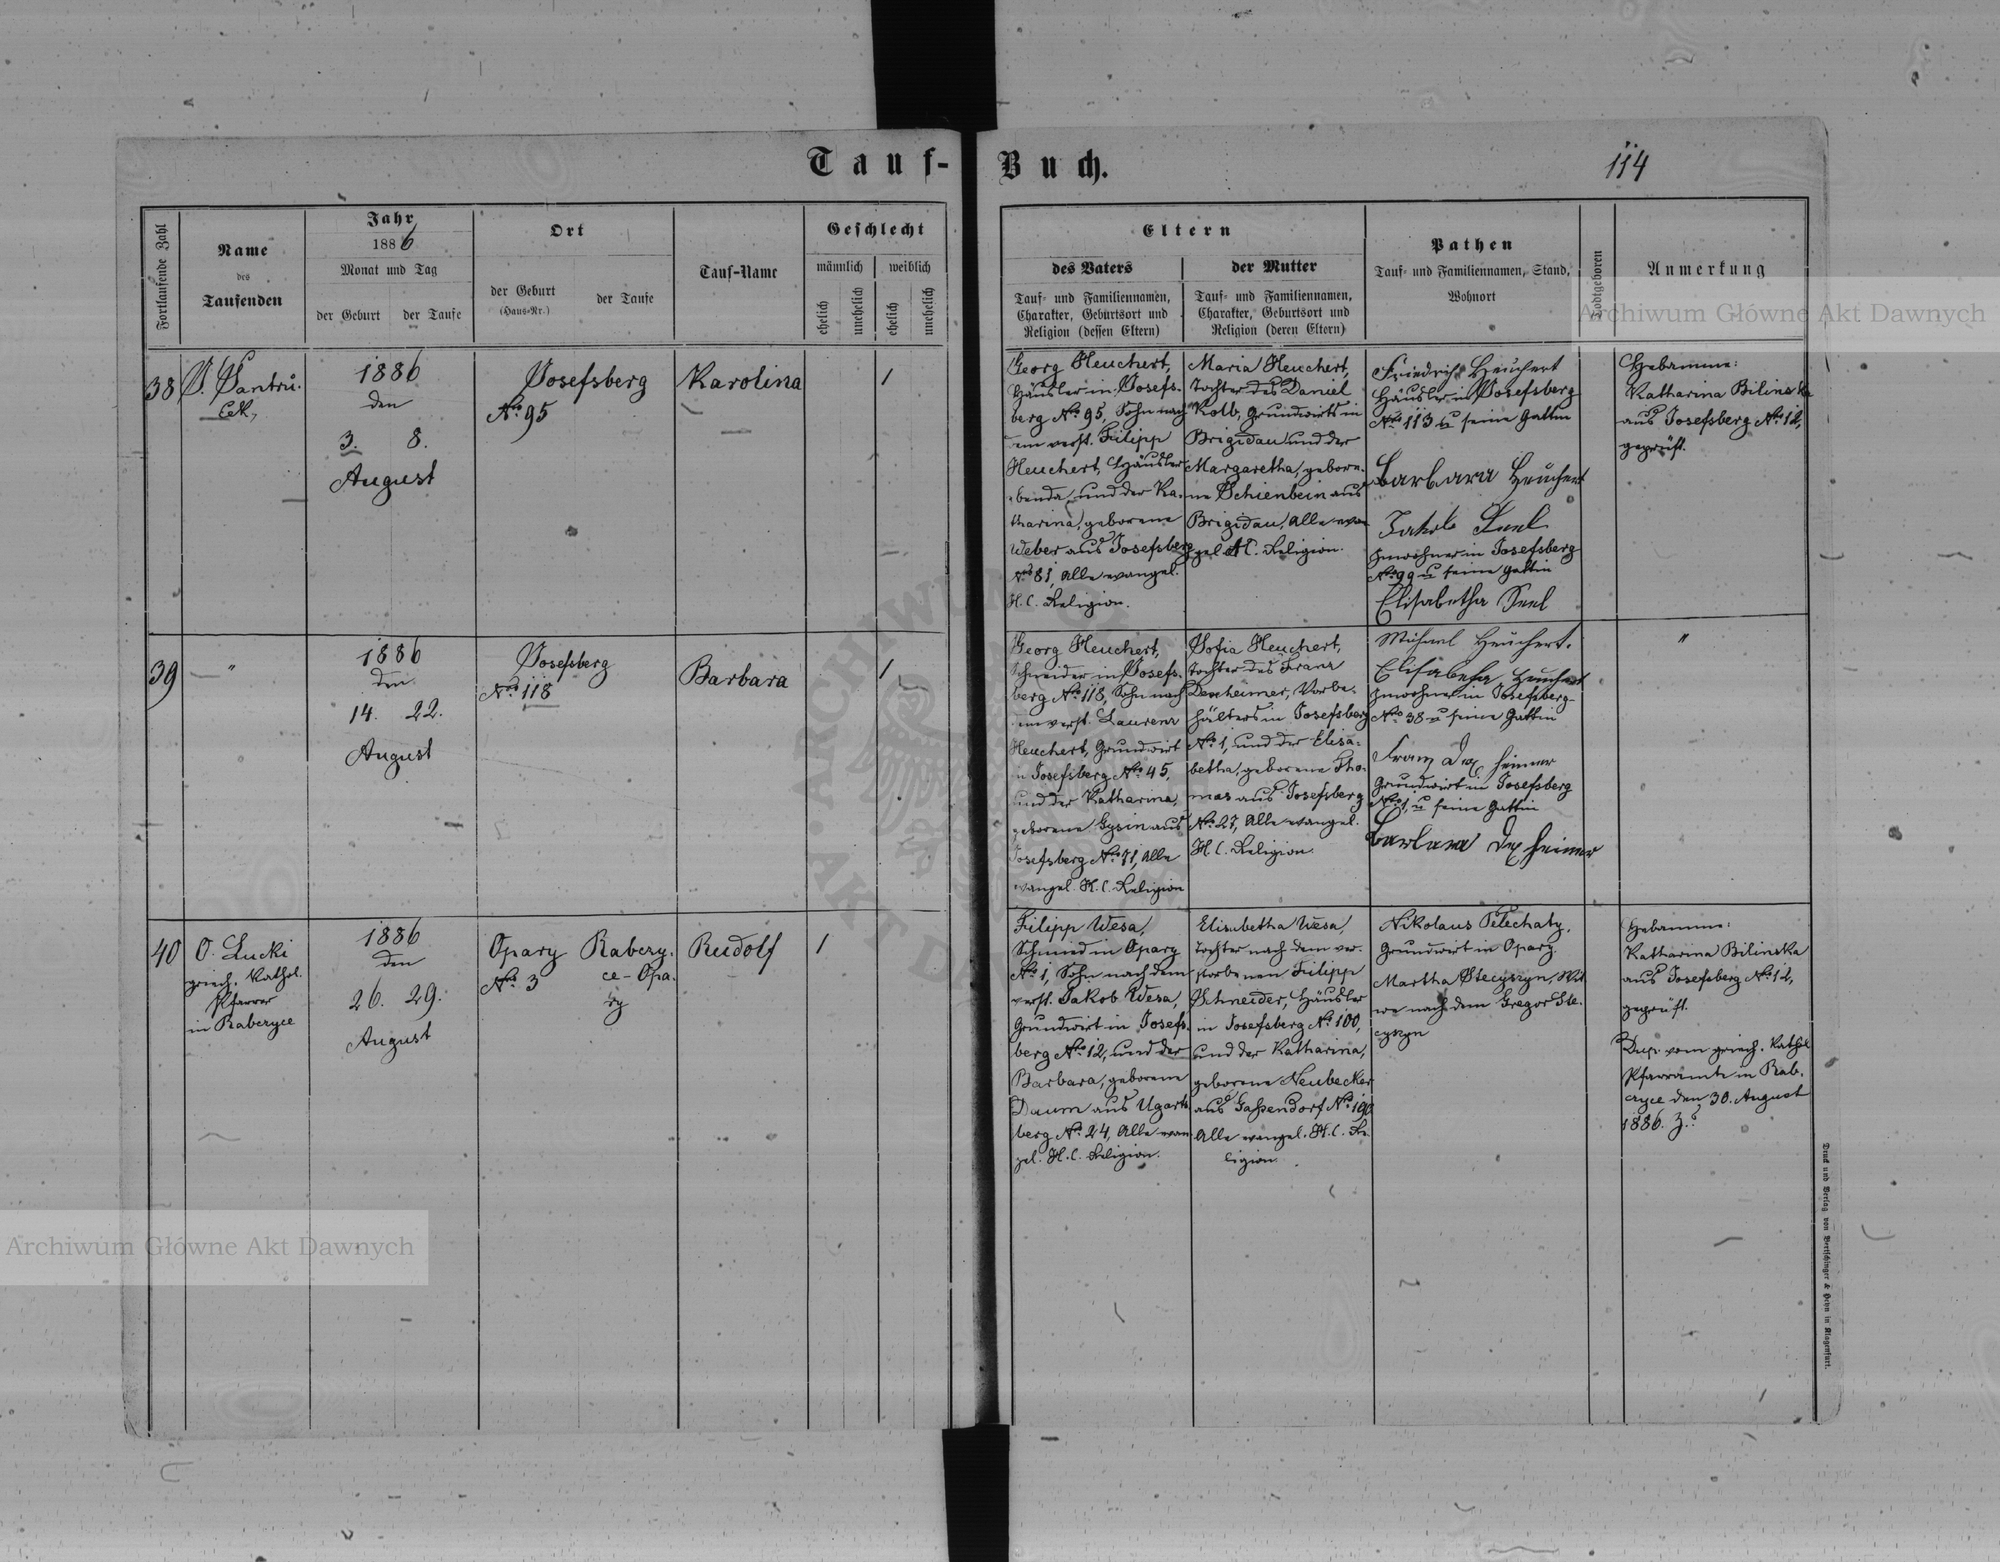 Tauf-Buch.
114
Fortlaufende Zahl
Name
des
Taufenden
Jahr
1886
Monat und Tag
der Geburt
der Taufe
Ort
der Geburt
(Haus-Nr.)
der Taufe
Tauf-Name
Geschlecht
männlich
weiblich
ehelich
unehelich
ehelich
unehelich
Eltern
des Vaters
Tauf- und Familiennamen,
Charakter, Geburtsort und
Religion (dessen Eltern)
der Mutter
Tauf- und Familiennamen,
Charakter, Geburtsort und
Religion (deren Eltern)
Pathen
Tauf- und Familiennamen, Stand,
Wohnort
Todtgeboren
Anmerkung
38
1886
den
3. 8.
August
Josefsberg
No. 95
Karolina
1
Georg Heuchert,
Häusler in Josefs-
berg No. 95, Sohn nach
dem verst. Filipp
Heuchert, Häusler
ebenda, und der Ka-
tharina, geborene
Weber aus Josefsberg
No. 81, Alle evangel.
H. C. Religion.
Maria Heuchert,
Tochter des Daniel
Kolb, Grundwirts in
Brigidau und der
Margaretha, gebore-
ne Schienbein aus
Brigidau, Alle evan
gel. H. C. Religion.
Friedrich Heuchert
Häusler in Josefsberg
No. 113 u seine Gattin
Barbara Heuchert
Jakob
Inwohner in Josefsberg
No. 99 u seine Gattin
Elisabetha
Hebamme:
Katharina Bilinska
aus Josefsberg No. 12,
geprüft.
39
"
1886
den
14. 22.
August
Josefsberg
No. 118
Barbara
1
Georg Heuchert,
Schneider in Josefs-
berg No. 118, Sohn nach
dem verst. Laurenz
Heuchert, Grundwirt
in Josefsberg No. 45,
und der Katharina,
geborene Gysin aus
Josefsberg No. 71, Alle
evangel. H. C. Religion
Sofia Heuchert,
Tochter des Franz
Dexheimer, Vorbe-
hälters in Josefsberg
No. 1, und der Elisa-
betha, geborene Tho-
mas aus Josefsberg
No. 27, Alle evangel.
H. C. Religion.
Michael Heuchert.
Elisabetha Heuchert
Inwohner in Josefsberg
No. 38 u seine Gattin
Franz Dexheimer
Grundwirt in Josefsberg
No. 1, u seine Gattin
Barbara Dexheimer
"
40
O. Lucki
griech. kathol.
Pfarrer
in Raberyce
1886
den
26. 29.
August
Opary
No. 3
Rabery-
ce - Opa-
ry
Rudolf
1
Filipp Wesa,
Schmied in Opary
No. 1, Sohn nach dem
verst. Jakob Wesa,
Grundwirt in Josefs-
berg No. 12, und der
Barbara, geborene
Daum aus Ugarts
berg No. 24, Alle evan
gel. H. C. Religion.
Elisabetha Wesa,
Tochter nach dem ver-
storbenen Filipp
Schneider, Häusler
in Josefsberg No. 100,
und der Katharina,
geborene Neubecker
aus Gassendorf No. 190
Alle evangel. H. C. Re
ligion.
Nikolaus Pelechaty,
Grundwirt in Opary.
Martha Stecyszyn, Wit
we nach dem Gregor Ste-
cyszyn
Hebamme:
Katharina Bilinska
aus Josefsberg No. 12,
geprüft.
Dup. vom griech. kathol
Pfarramte in Rab.
eryce den 30. August
1886. Z. 8
Druck und Verlag von Bertschinger & Heyn in Klagenfurt.
Archiwum Główne Akt Dawnych
Archiwum Główne Akt Dawnych